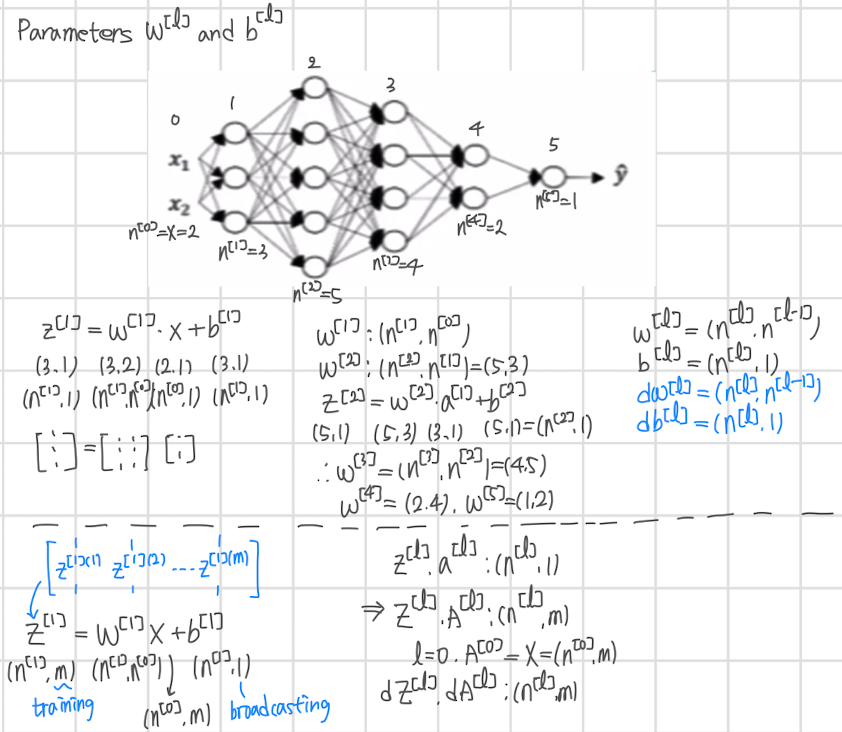 Parameters W^[l] and b^[l]
0 1 2 3 4 5
x₁
x₂
ŷ
n^[0]=X=2
n^[1]=3
n^[2]=5
n^[3]=4
n^[4]=2
n^[5]=1
z^[1] = W^[1]. X + b^[1]
(3.1) (3,2) (2.1) (3.1)
(n^[1],1) (n^[1],n^[0]) (n^[0],1) (n^[1],1)
W^[1] : (n^[1], n^[0])
W^[2] : (n^[2], n^[1]) = (5,3)
z^[2] = W^[2]. a^[1] + b^[2]
(5,1) (5,3) (3.1) (5,1) = (n^[2],1)
∴ W^[3] = (n^[3], n^[2]) = (4.5)
W^[4] = (2.4). W^[5] = (1,2)
W^[l] = (n^[l], n^[l-1])
b^[l] = (n^[l], 1)
dW^[l] = (n^[l], n^[l-1])
db^[l] = (n^[l], 1)
[z^[1](1) z^[1](2) .... z^[1](m)]
Z^[1] = W^[1] X + b^[1]
(n^[1], m) (n^[1], n^[0]) (n^[1], 1)
training
(n^[0], m)
broadcasting
z^[l]. a^[l] : (n^[l], 1)
⇒ Z^[l]. A^[l] : (n^[l], m)
l=0. A^[0] = X = (n^[0], m)
dZ^[l]. dA^[l] : (n^[l], m)